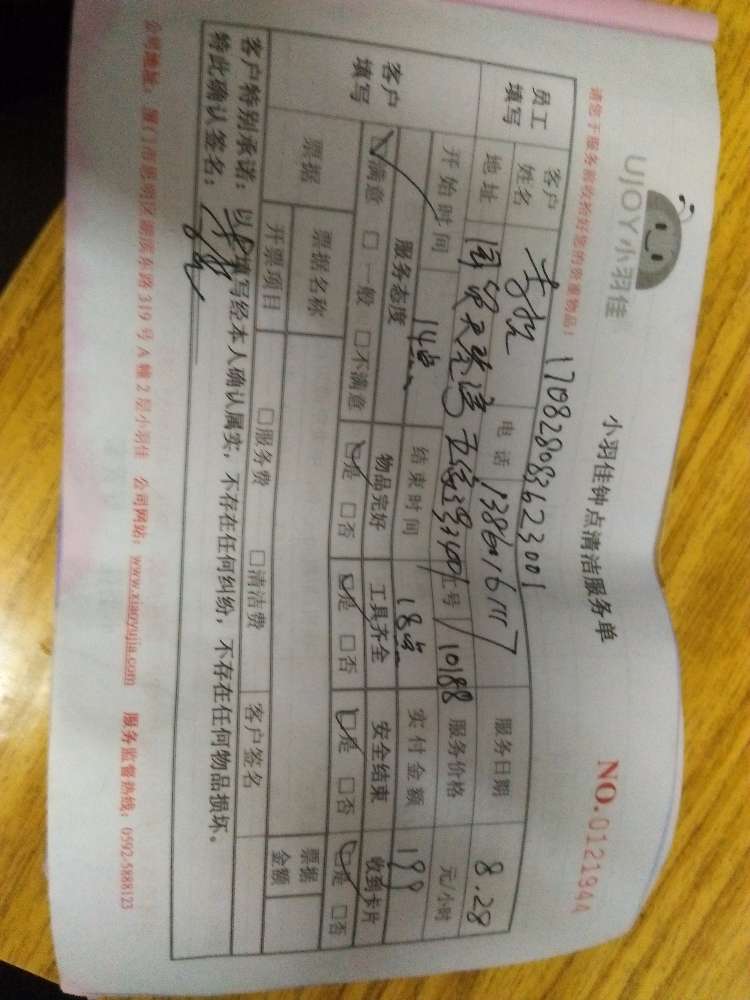 UJOY小羽佳
小羽佳钟点清洁服务单
NO.0121944
请您于服务前收拾好您的贵重物品!
170828083623001
员工填写
客户姓名 李 电话 服务日期 8.28
地址 国贸天琴湾 工号 10188 服务价格 元/小时
开始时间 14点 结束时间 18点 实付金额 199
客户填写
服务态度 物品完好 工具齐全 安全结束 收到卡片
☑满意 □一般 □不满意 ☑是 □否 ☑是 □否 ☑是 □否 ☑是 □否
票据 票据名称 票据金额
开票项目 □服务费 □清洁费 客户签名
客户特别承诺:以上填写经本人确认属实,不存在任何纠纷,不存在任何物品损坏。
特此确认签名:
公司地址:厦门市思明区湖滨东路319号A幢2层小羽佳 公司网站:www.xiaoyujia.com 服务监督热线:0592-5888123